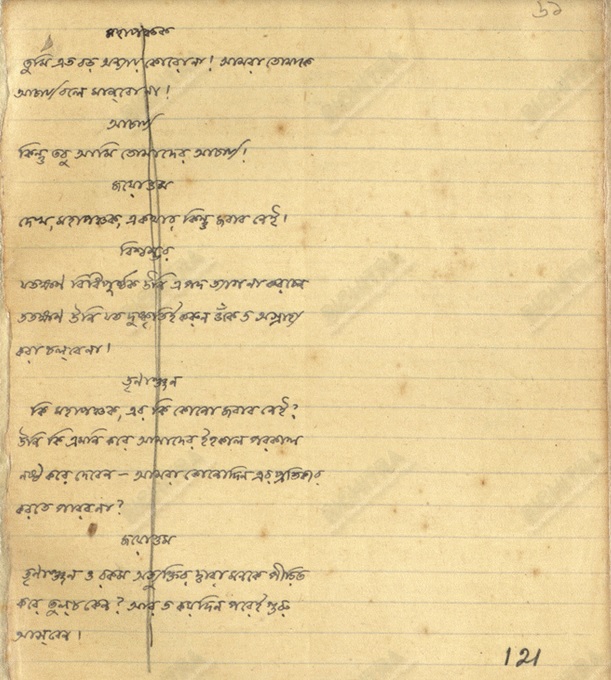 ৬১
মহাপঞ্চক
তুমি এত বড় অন্যায় কোরোনা! আমরা তোমাকে
আচার্য্য বলে মানবোনা!
আচার্য্য
কিন্তু তবু আমি তোমাদের আচার্য্য!
জয়োত্তম
দেখ, মহাপঞ্চক, একথার কিন্তু জবাব নেই।
বিশ্বম্ভর
যতক্ষণ বিধিপূর্ব্বক উনি এ পদ ত্যাগ না করচেন
ততক্ষণ উনি যত দুষ্কৃতিই করুন ওঁকে ত অগ্রাহ্য
করা চল্‌বেনা!
তৃণাঞ্জন
কি মহাপঞ্চক, এর কি কোনো জবাব নেই?
উনি কি এমনি করে আমাদের ইহকাল পরকাল
নষ্ট করে দেবেন — আমরা কোনোদিন এর প্রতিকার
করতে পারবনা?
জয়োত্তম
তৃণাঞ্জন ও রকম অত্যুক্তির দ্বারা মনকে পীড়িত
করে তুল্‌চ কেন? আর ত কয়দিন পরেই গুরু
আস্‌বেন।
121
BICHITRA